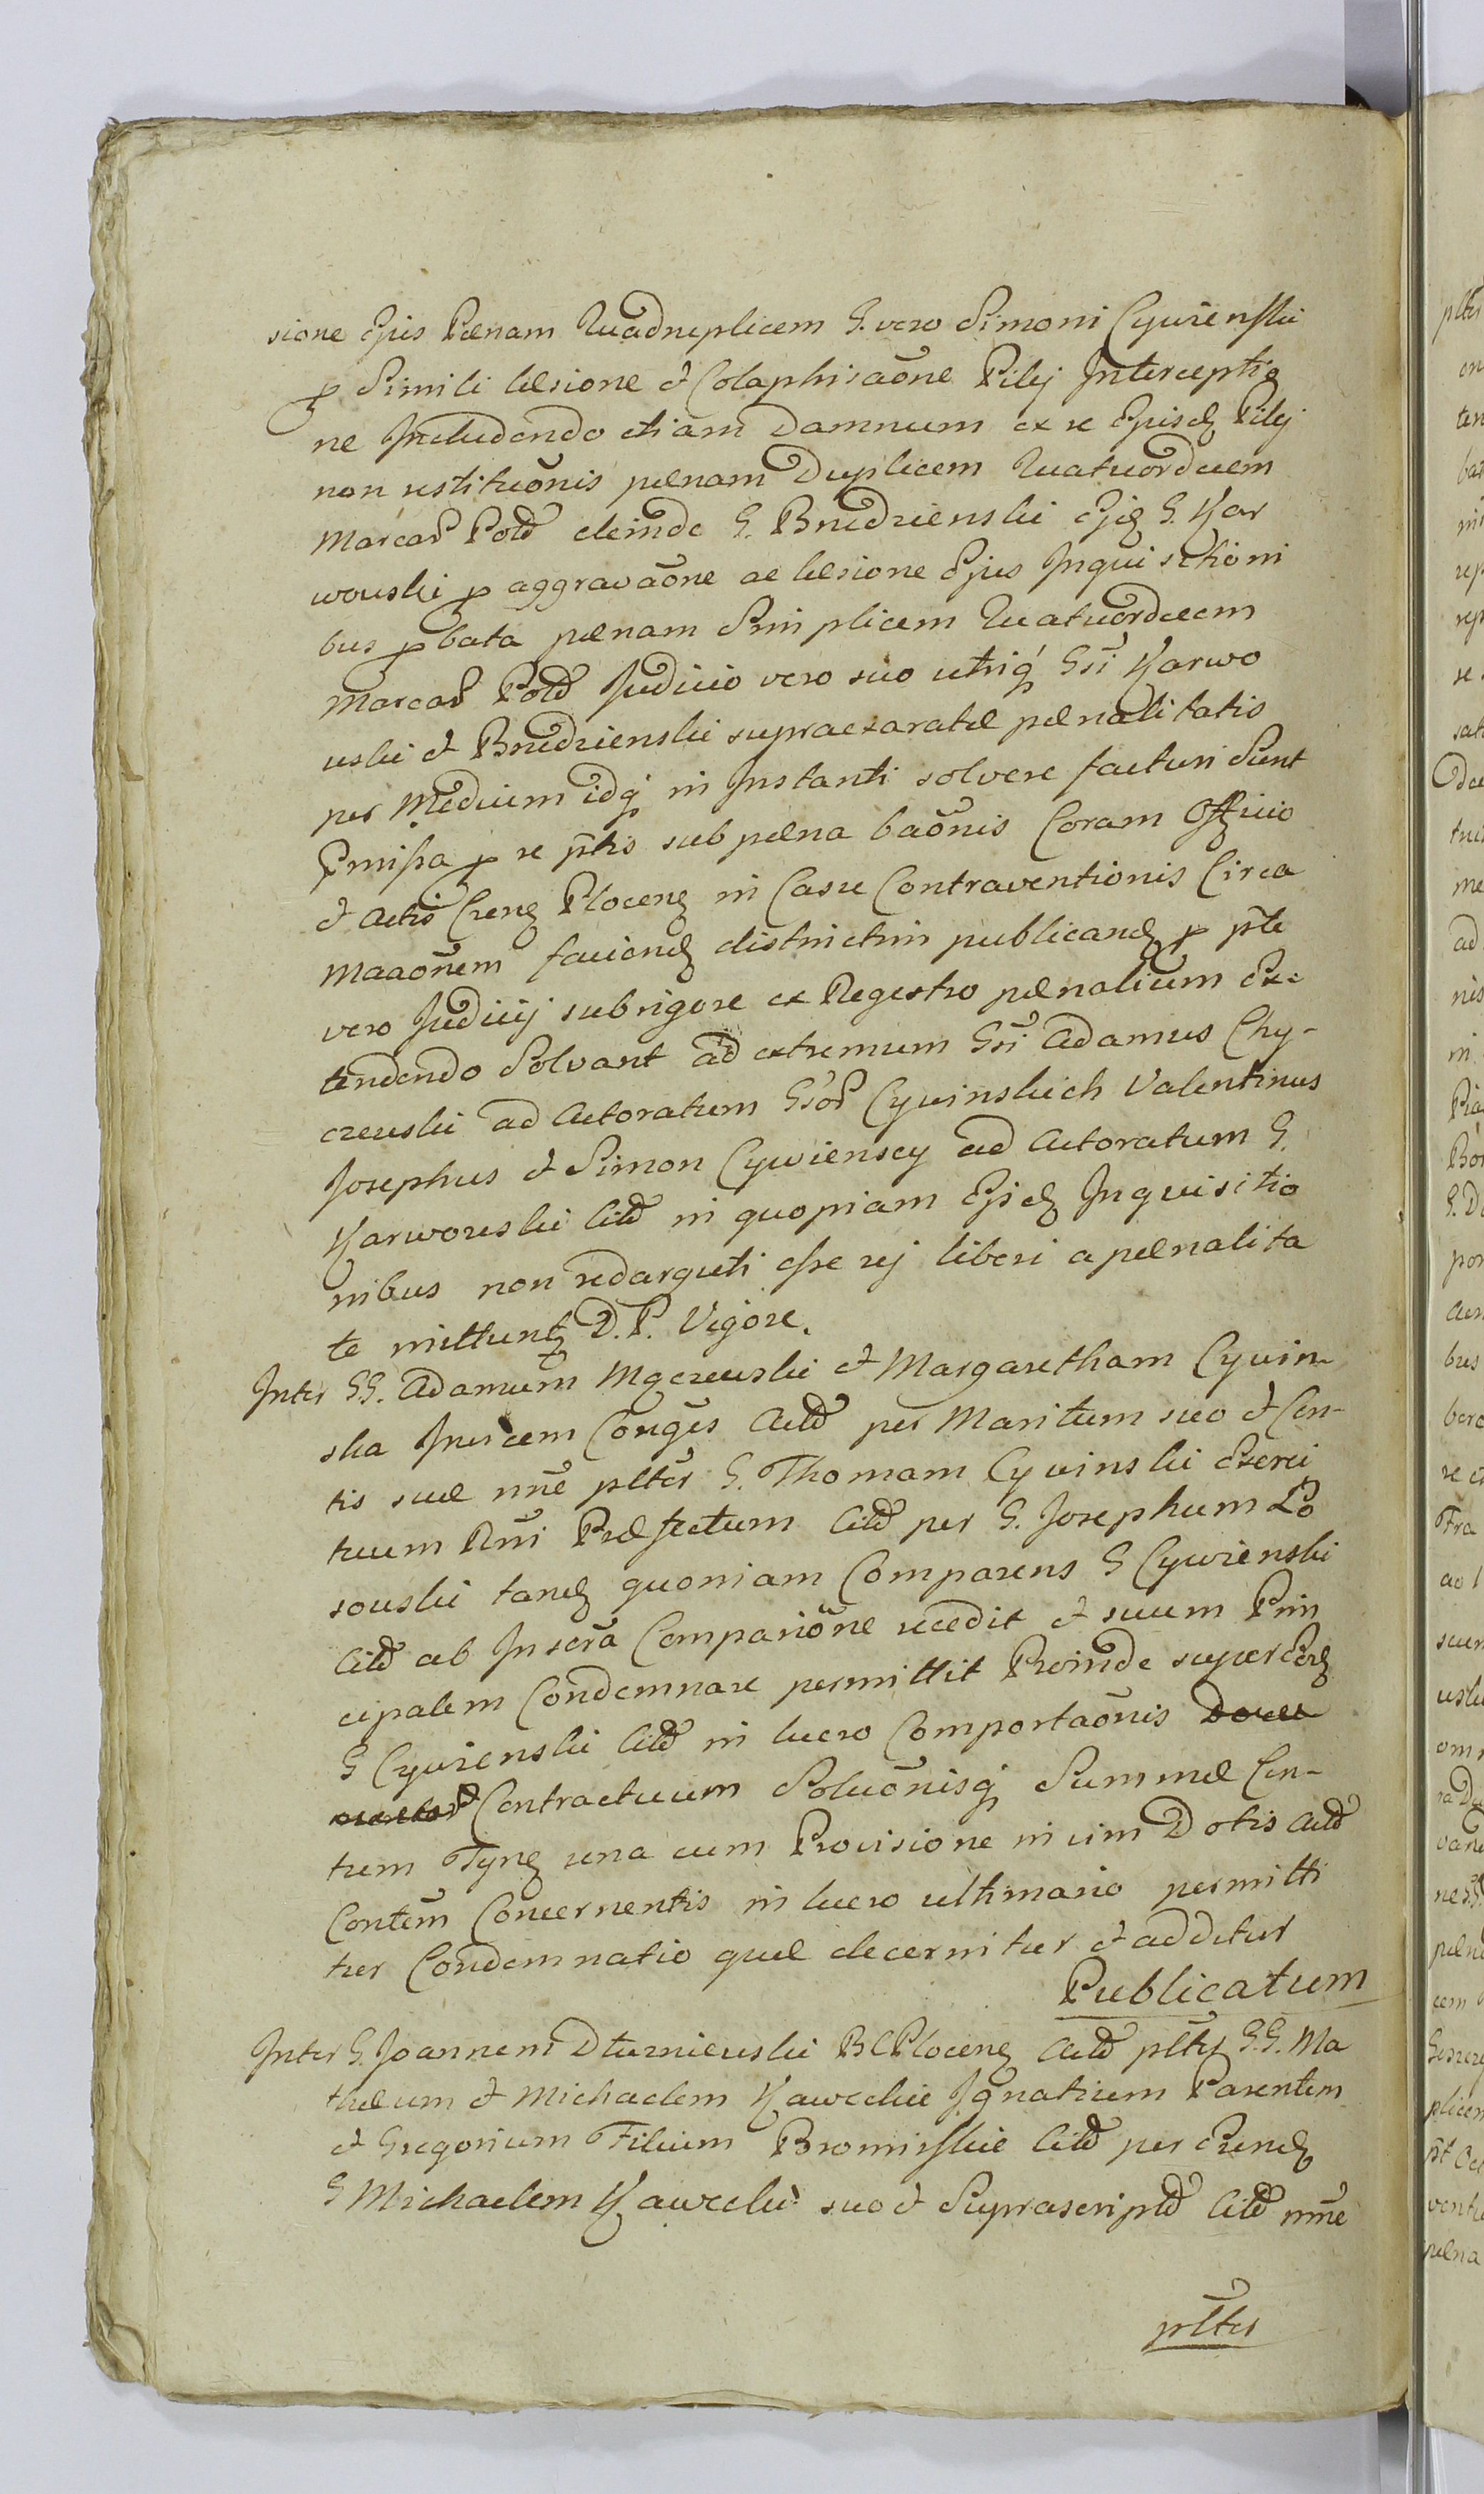 sione Ejus Pænam Quadruplicem G. vero Simoni Cywienski
p Simili læsione et Colaphisaõne Pilej Interceptio
ne Includendo etiam Damnum ex re Ejusd Pilej
non restituõnis pænam Duplicem Quatuordecem
Marcar Pold deinde G. Brudzienski Ejd G. Kar
wouski p aggravaõne ac læsione Ejus Inquisitioni
bus pbata pænam Simplicem Quatuordecem
Marcar Pold Judicio vero suo utriq Gsi Karwo
uski et Brudzienski supraexaratæ pænalitatis
per Medium idq in Instanti solvere facturi Sunt
Pmissa p se ptis sub pæna baõnis Coram Officio
et Actis Cren Plocen in Casu Contraventionis Circa
Maaõnem faciend districtim publicand p pte
vero Judicij sub rigore ex Regestro pænalium Ex-
tendendo Solvant ad extremum Gsi Adamus Chy-
czewski ad Actoratum Gsor Cywinskich Valentinus
Josephus et Simon Cywienscy ad Actoratum G.
Karwowski Citd in quopiam Ejsd Inquisitio
nibus non redarguti esse rej liberi a pænalita
te mittunt D. P. Vigore.
Inter GG. Adamum Mgczewski et Margaretham Cywin-
ska Invicem Conges Actd per Maritum suo et Con-
tis suæ nne plter G. Thomam Cywinski Exerci
tuum Rni Præfectum Citd per G. Josephum Lo
souski tand quoniam Comparens G Cywienski
Citd ab Inscra Compariõne recedit et suum Prin
cipalem Condemnare permittit Proinde super Eod
G Cywienski Citd in lucro Comportaõnis
Contractuum Soluõnisq Summæ Cen-
tum Tyn una cum Provisione in vim Dotis Actd
Contem Concernentis in lucro ultimario permitti
tur Condemnatio quæ decernitur et additur
Publicatum
Inter G. Joannem Dturniewski BC Plocen Actd plter G.G. Ma
thæum et Michaelem Kaweckie Ignatium Parentem
et Gregorium Filium Bromirskie Citd per Eund
G Michaelem Kawecki suo et Suprascriptd Citd nne
plter